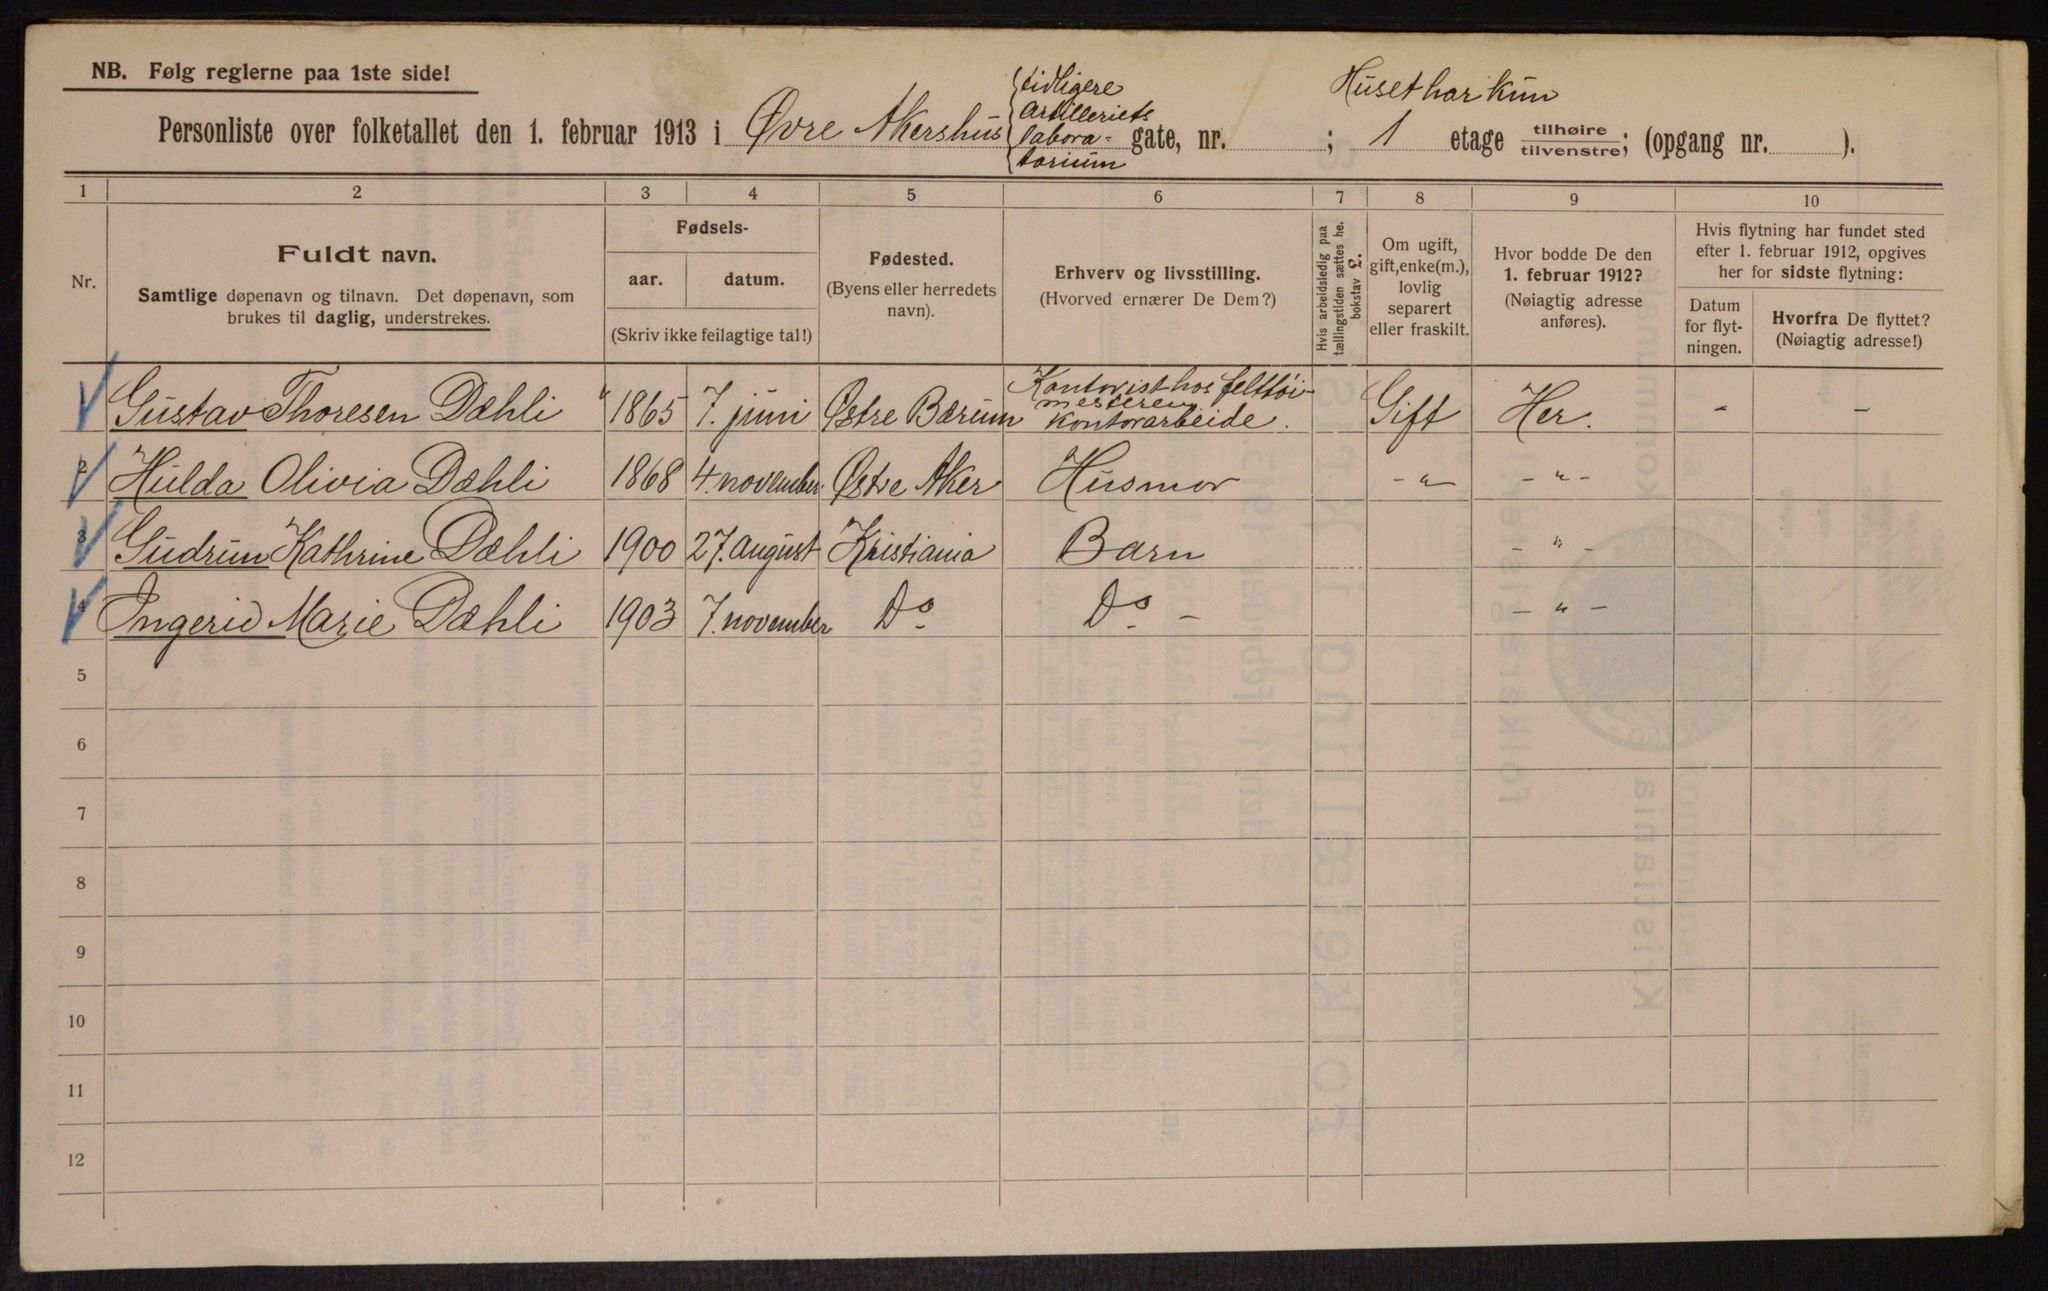 NB. Følg reglerne paa 1ste side!
Personliste over folketallet den 1. februar 1913 i Øvre Akershus { tidligere
artilleriets
labora-
torium
gate, nr. ; Huset har kun
1 etage tilhøire
tilvenstre; (opgang nr. ).
1 2 3 4 5 6 7 8 9 10
Nr.
Fuldt navn.
Samtlige døpenavn og tilnavn. Det døpenavn, som
brukes til daglig, understrekes.
Fødsels-
aar. datum.
(Skriv ikke feilagtige tal!)
Fødested.
(Byens eller herredets
navn).
Erhverv og livsstilling.
(Hvorved ernærer De Dem?)
Hvis arbeidsledig paa
tællingstiden sættes he.
bokstav L.
Om ugift,
gift, enke(m.),
lovlig
separert
eller fraskilt.
Hvor bodde De den
1. februar 1912?
(Nøiagtig adresse
anføres).
Hvis flytning har fundet sted
efter 1. februar 1912, opgives
her for sidste flytning:
Datum
for flyt-
ningen.
Hvorfra De flyttet?
(Nøiagtig adresse!)
Gustav Thoresen Dæhli 1865 7. juni Østre Bærum Kontorist hos felttøi-
mesteren
kontorarbeide. Gift Her. - -
2 Hulda Olivia Dæhli 1868 4. november Østre Aker Husmor - " - - " -
3 Gudrun Kathrine Dæhli 1900 27. august Kristiania Barn - " -
4 Ingerid Marie Dæhli 1903 7. november Do Do - - " -
5
6
7
8
9
10
11
12